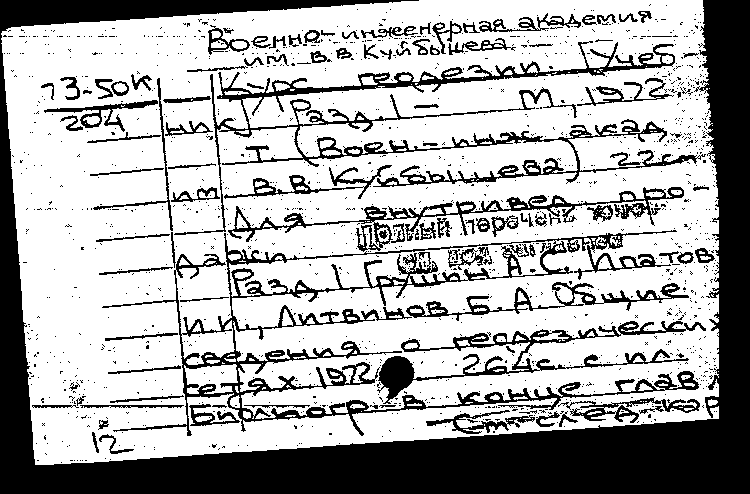 Военно-инженерная академия
им. В.В. Куйбышева
73-50к
204
Курс геодезии. [Учеб-
ник] Разд. 1 - М., 1972
т. (Воен.-инж. акад
им В.В. Куйбышева) 22см
Для внутривед про-
дажи
Полный перечень
см. под заглавием
Разд. 1. Грушин А.С., Ипатов
И.П., Литвинов, Б.А. Общие
сведения о геодезических
сетях 1972. 264с. с ил.
Библиогр. в конце глав
См. след. кар
12